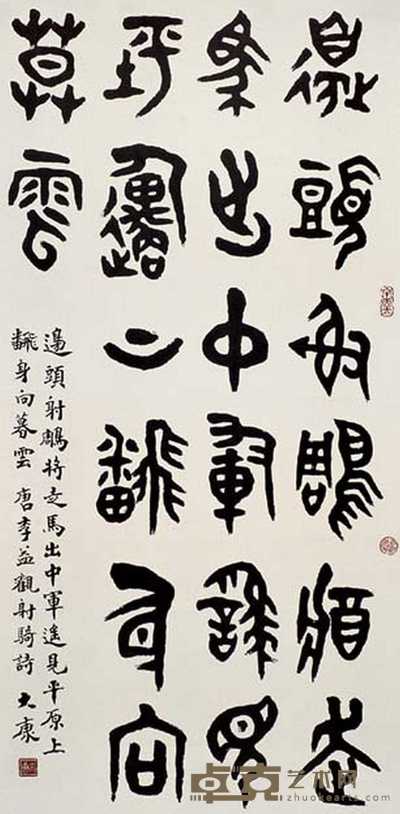 邊頭射鵰將走
馬出中軍遙見
平邍上飜身向
莫雲
邊頭射鵰將走馬出中軍遙見平原上
飜身向暮雲 唐李益觀射騎詩 大康
卓克艺术网
zhuokearts.com